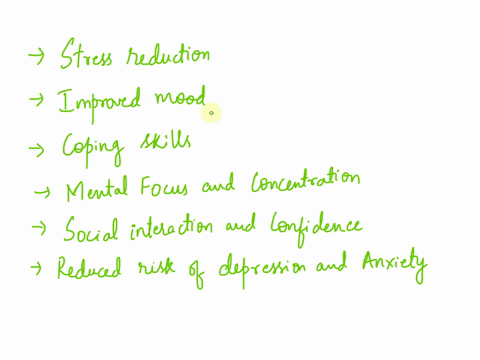 → Stress reduction
→ Improved mood
→ Coping skills
→ Mental Focus and Concentration
→ Social interaction and Confidence
→ Reduced risk of depression and Anxiety